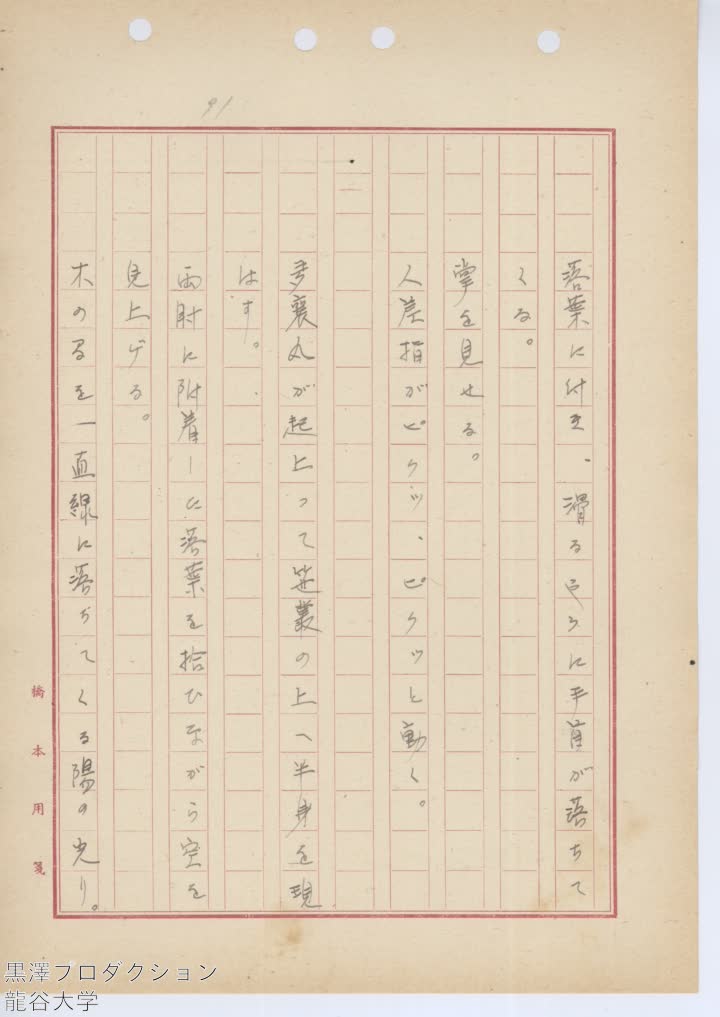 91
落葉に付き、滑るやうに手首が落ちて
くる。
掌を見せる。
人差指がピクッ、ピクッと動く。
一
多襄丸が起上って笹叢の上へ半身を現
はす。
両肘に附着した落葉を拾ひながら空を
見上げる。
木の間を一直線に落ちてくる陽の光り。
橋本用箋
黒澤プロダクション
龍谷大学